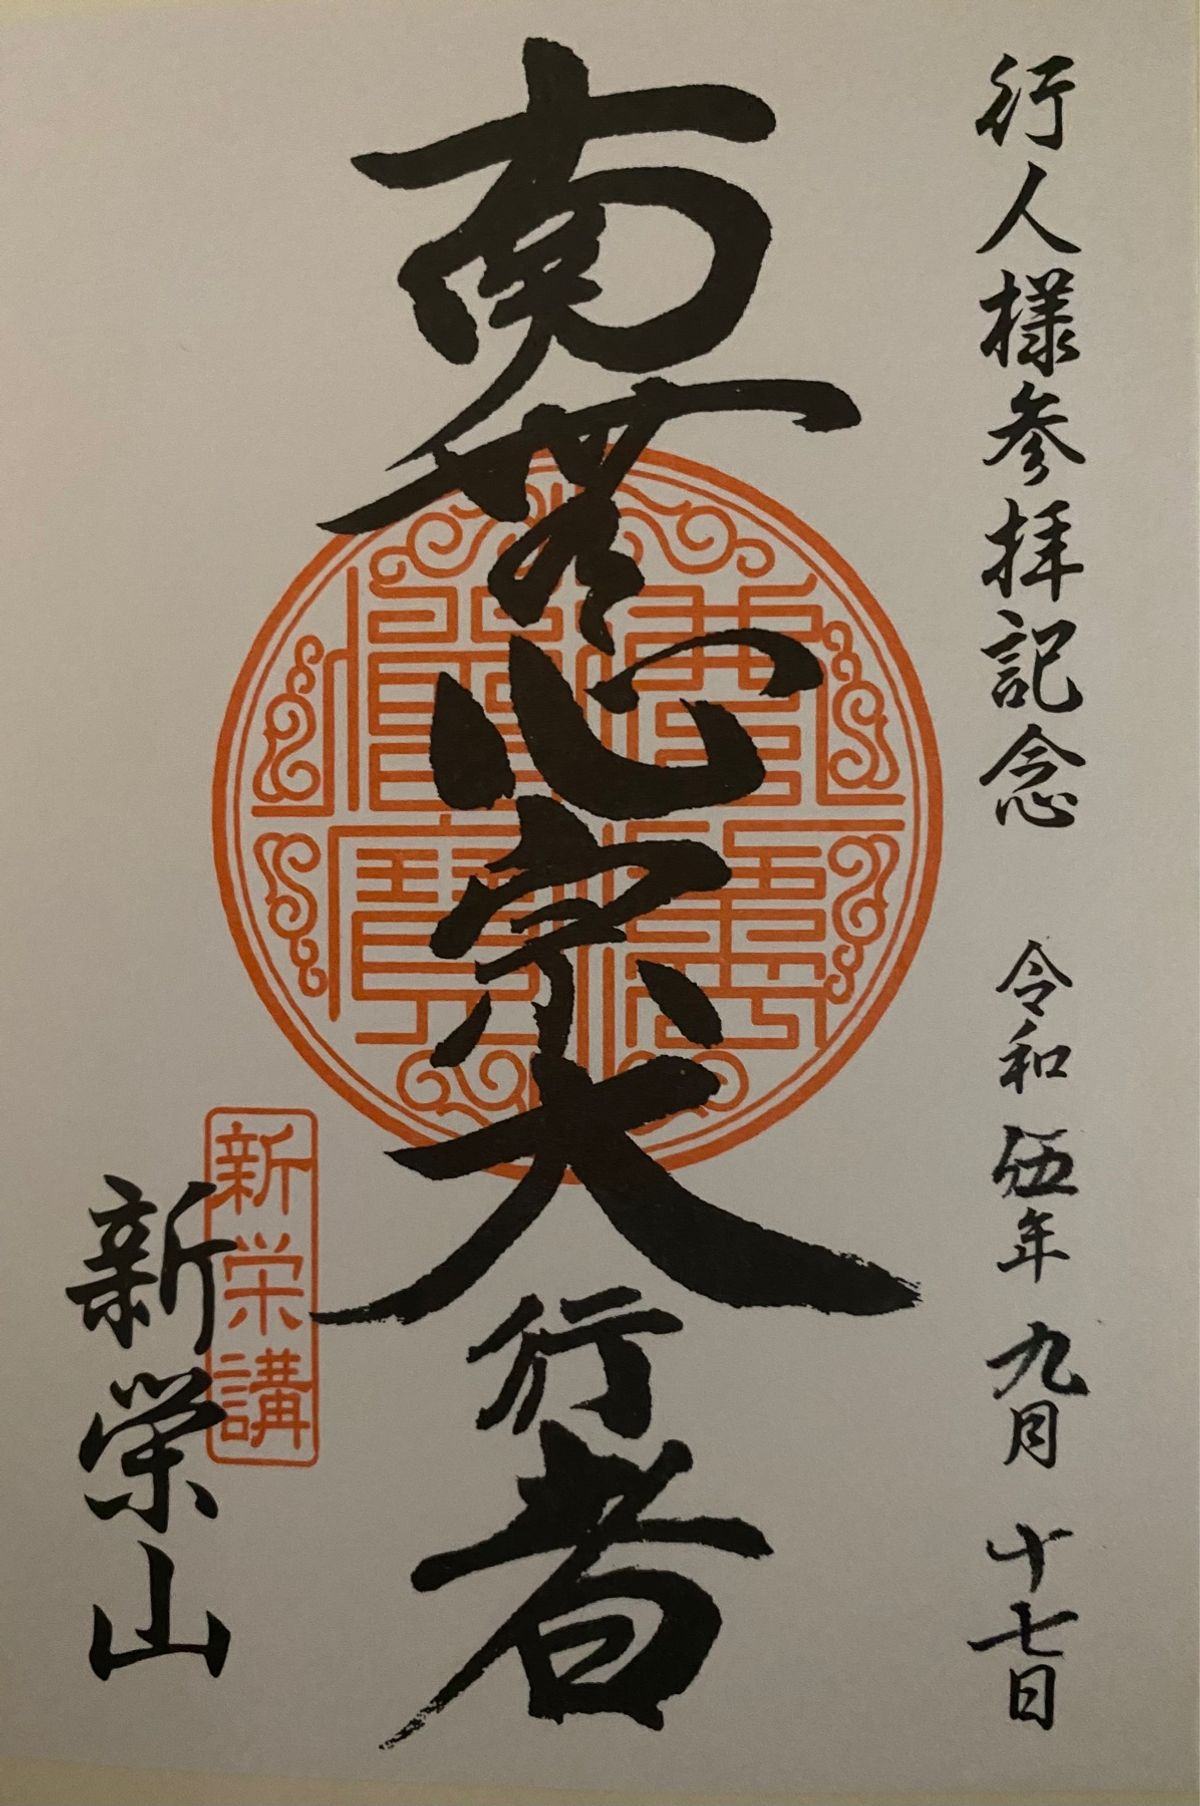 行人様参拝記念 令和伍年九月十七日
南無心宗大行者
新栄講
新栄山